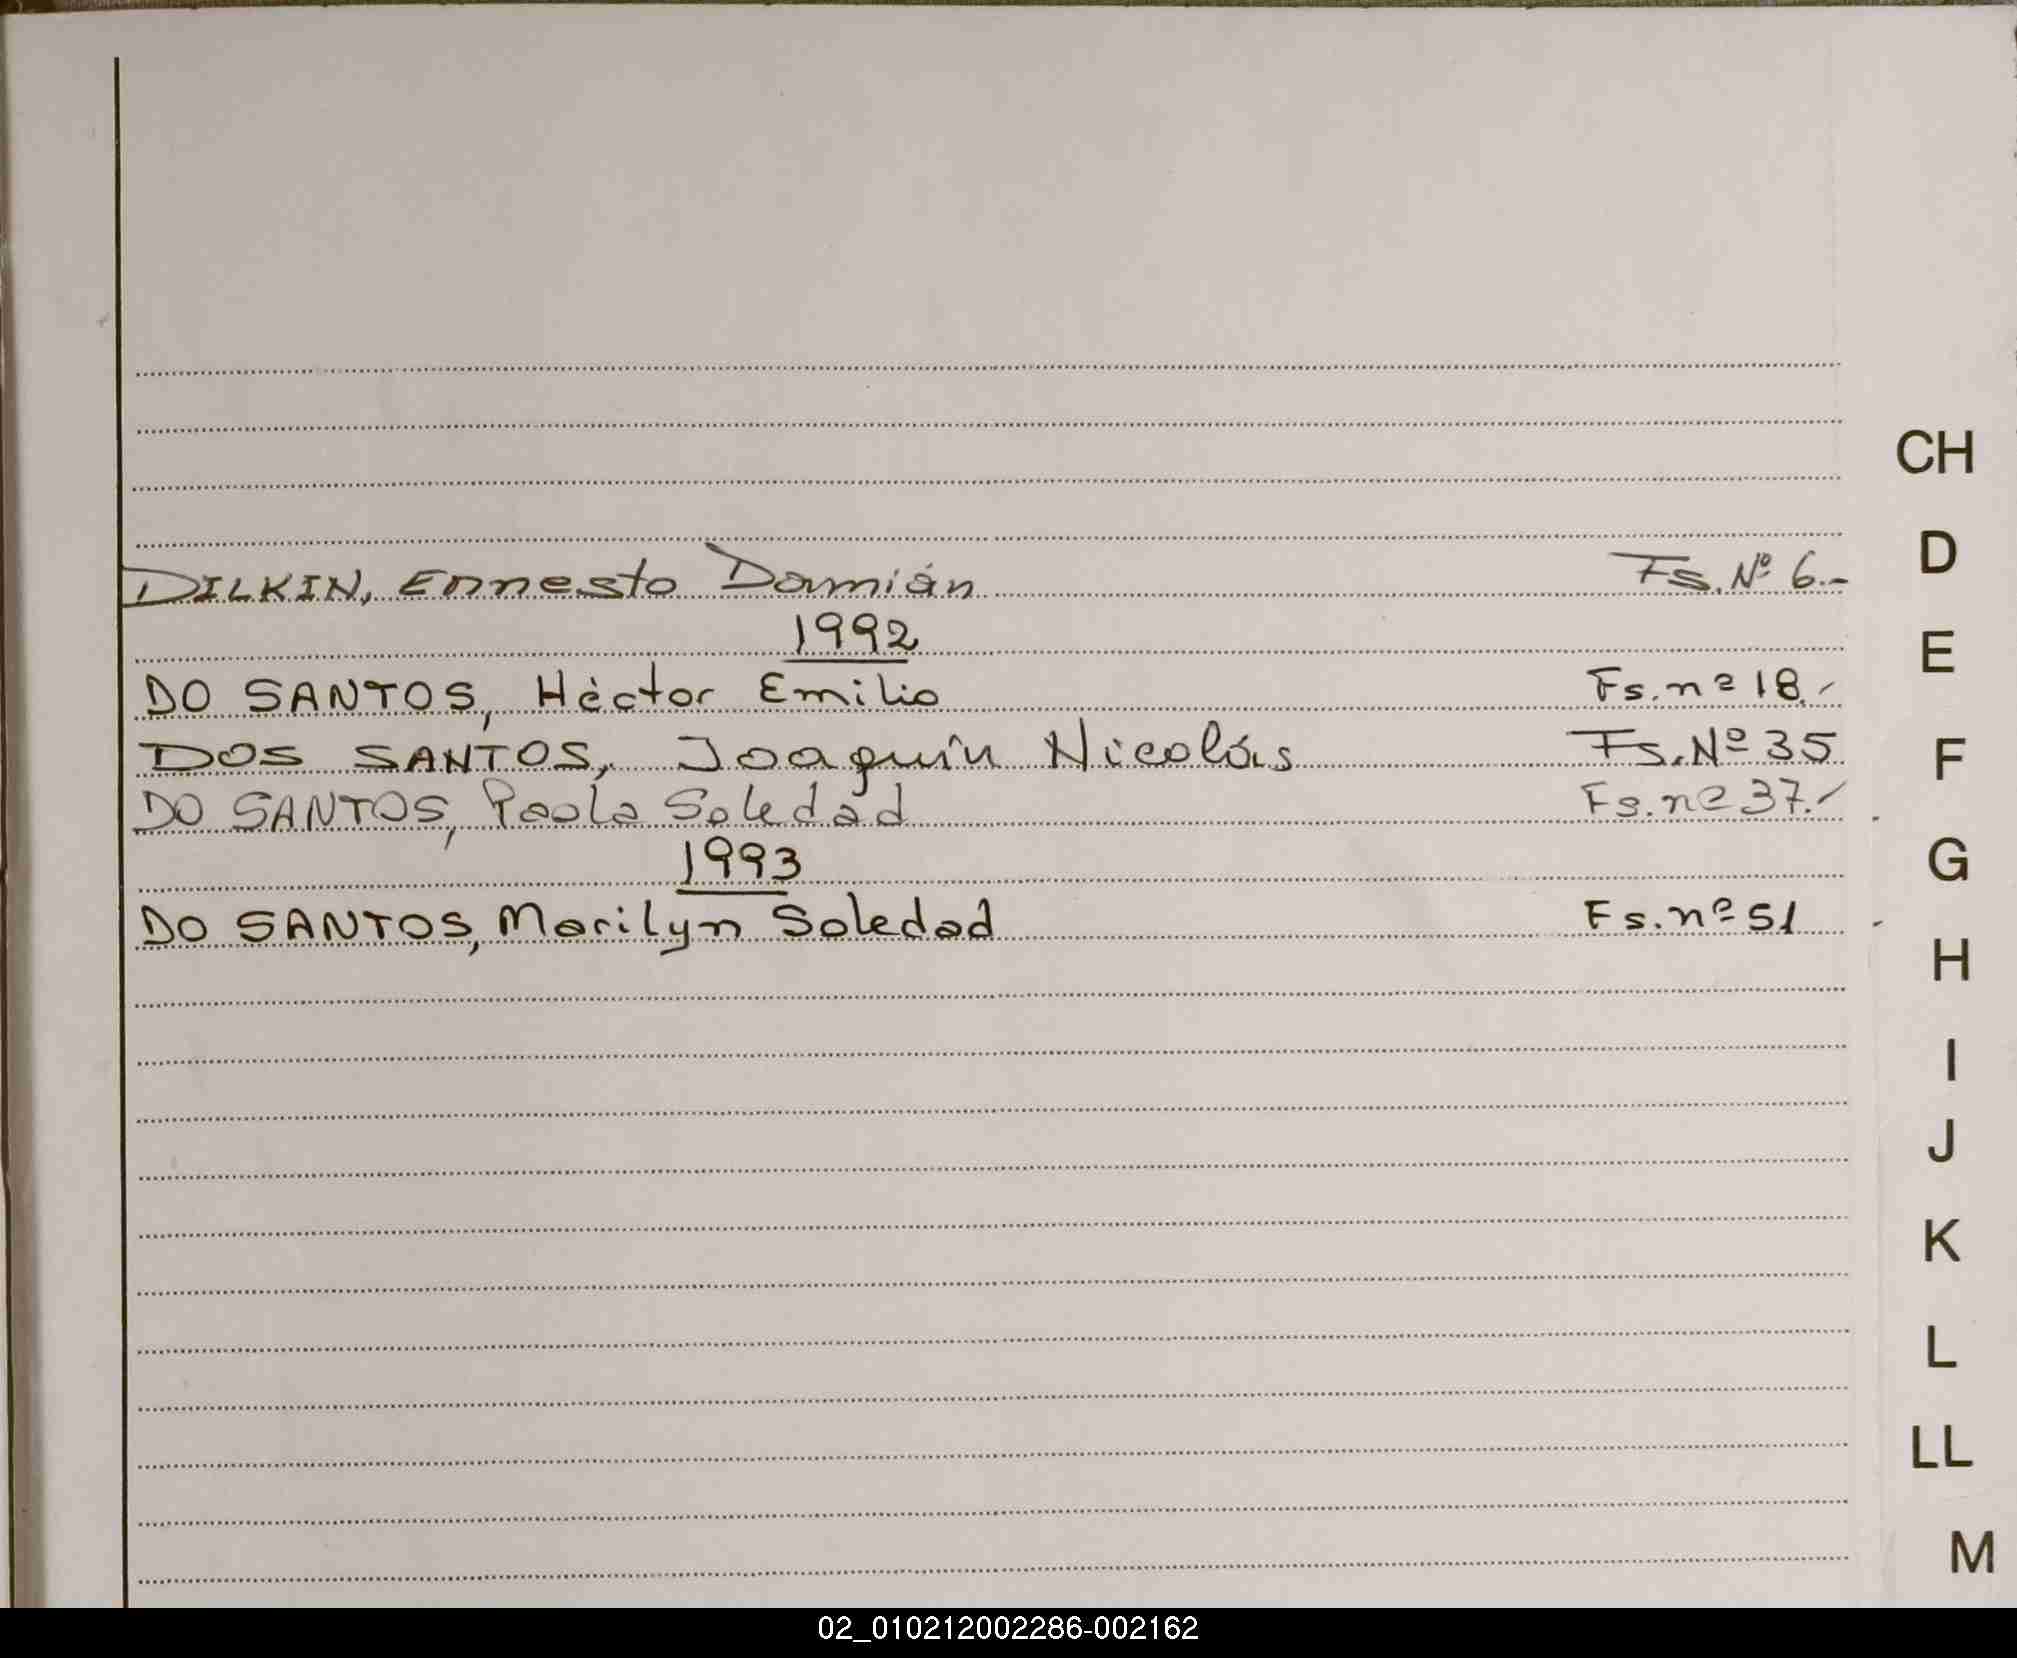 DILKIN, Ernesto Damián Fs. Nº 6.-
1992
DO SANTOS, Héctor Emilio Fs. nº 18.-
DOS SANTOS, Joaquín Nicolás Fs. Nº 35
DO SANTOS, Paola Soledad Fs. nº 37.-
1993
DO SANTOS, Marilyn Soledad Fs. nº 51
CH
D
E
F
G
H
I
J
K
L
LL
M
02_010212002286-002162